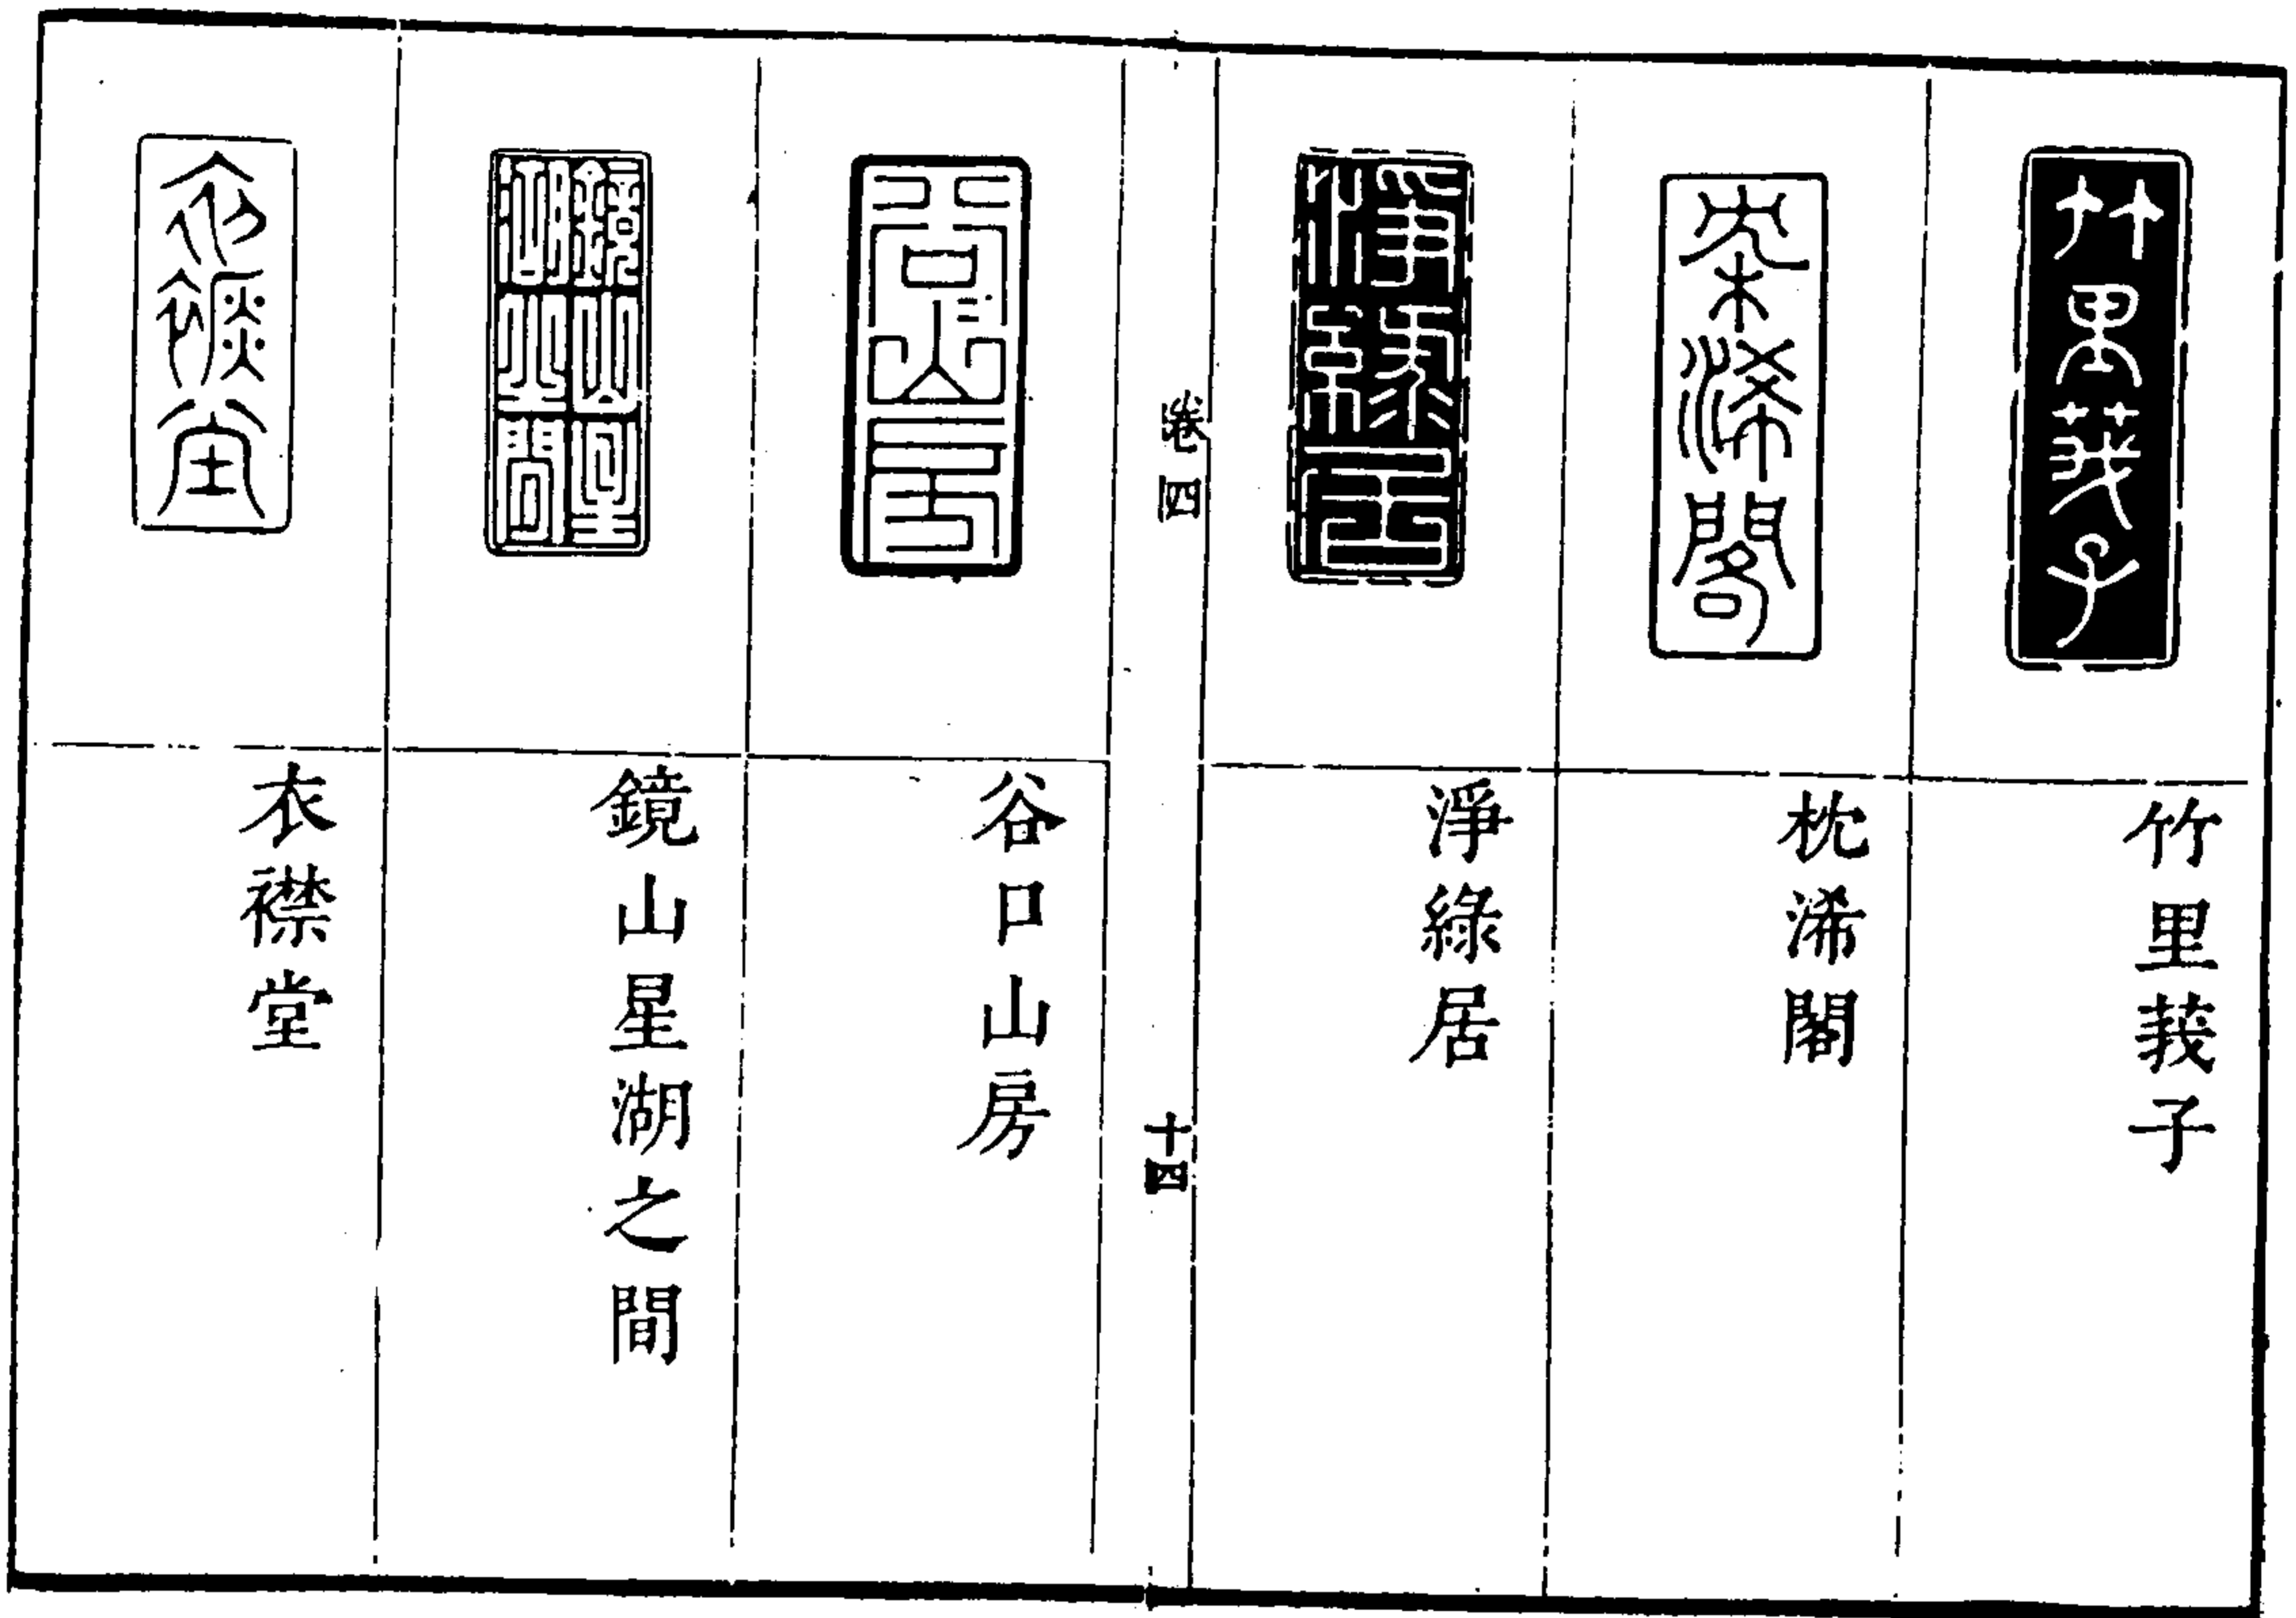 竹里莪子
竹里莪子
枕浠閣
枕浠閣
淨綠居
淨綠居
卷四
十四
谷口山房
谷口山房
鏡山星湖之間
鏡山星湖之間
衣襟堂
衣襟堂